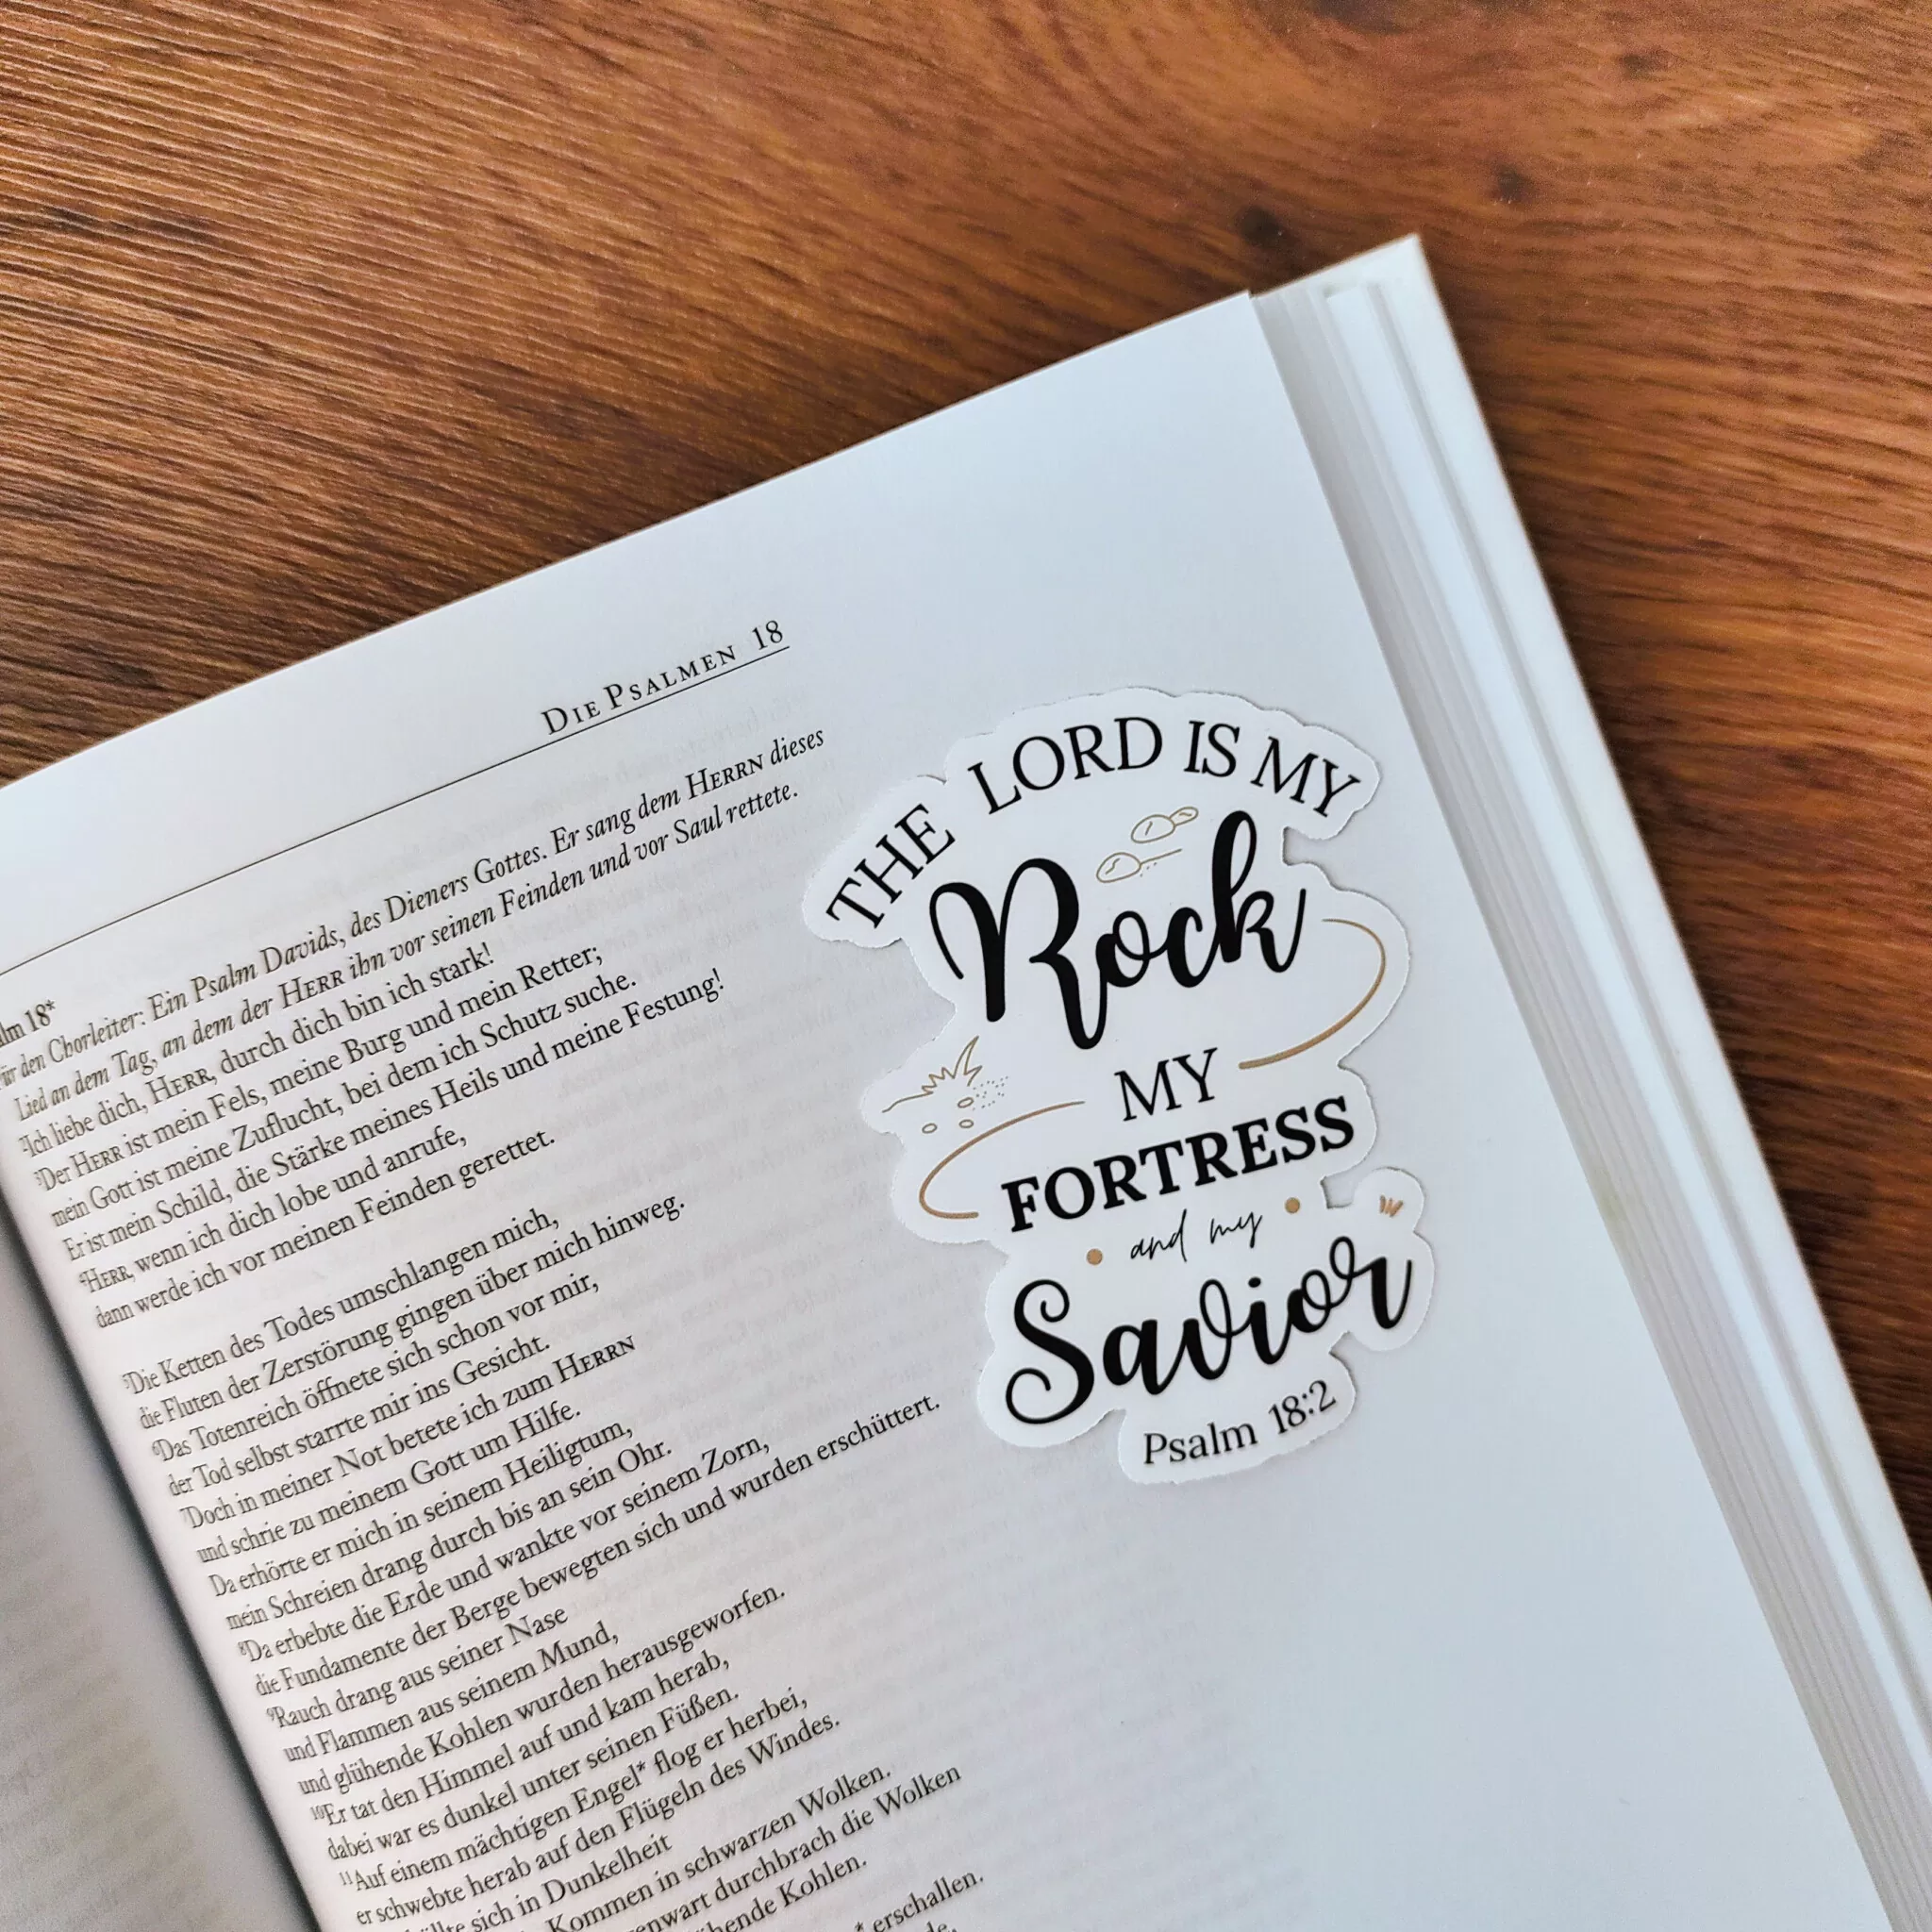 DIE PSALMEN 18
lm 18*
für den Chorleiter: Ein Psalm Davids, des Dieners Gottes. Er sang dem HERRN dieses
Lied an dem Tag, an dem der HERR ihn vor seinen Feinden und vor Saul rettete.
²Ich liebe dich, HERR, durch dich bin ich stark!
³Der HERR ist mein Fels, meine Burg und mein Retter;
mein Gott ist meine Zuflucht, bei dem ich Schutz suche.
Er ist mein Schild, die Stärke meines Heils und meine Festung!
⁴HERR, wenn ich dich lobe und anrufe,
dann werde ich vor meinen Feinden gerettet.
⁵Die Ketten des Todes umschlangen mich,
die Fluten der Zerstörung gingen über mich hinweg.
⁶Das Totenreich öffnete sich schon vor mir,
der Tod selbst starrte mir ins Gesicht.
⁷Doch in meiner Not betete ich zum HERRN
und schrie zu meinem Gott um Hilfe.
Da erhörte er mich in seinem Heiligtum,
mein Schreien drang durch bis an sein Ohr.
⁸Da erbebte die Erde und wankte vor seinem Zorn,
die Fundamente der Berge bewegten sich und wurden erschüttert.
⁹Rauch drang aus seiner Nase
und Flammen aus seinem Mund,
und glühende Kohlen wurden herausgeworfen.
¹⁰Er tat den Himmel auf und kam herab,
dabei war es dunkel unter seinen Füßen.
¹¹Auf einem mächtigen Engel* flog er herbei,
er schwebte herab auf den Flügeln des Windes.
sich in Dunkelheit
Kommen in schwarzen Wolken.
durchbrach die Wolken
Kohlen.
* erschallen.
THE LORD IS MY
Rock
MY
FORTRESS
and my
Savior
Psalm 18:2